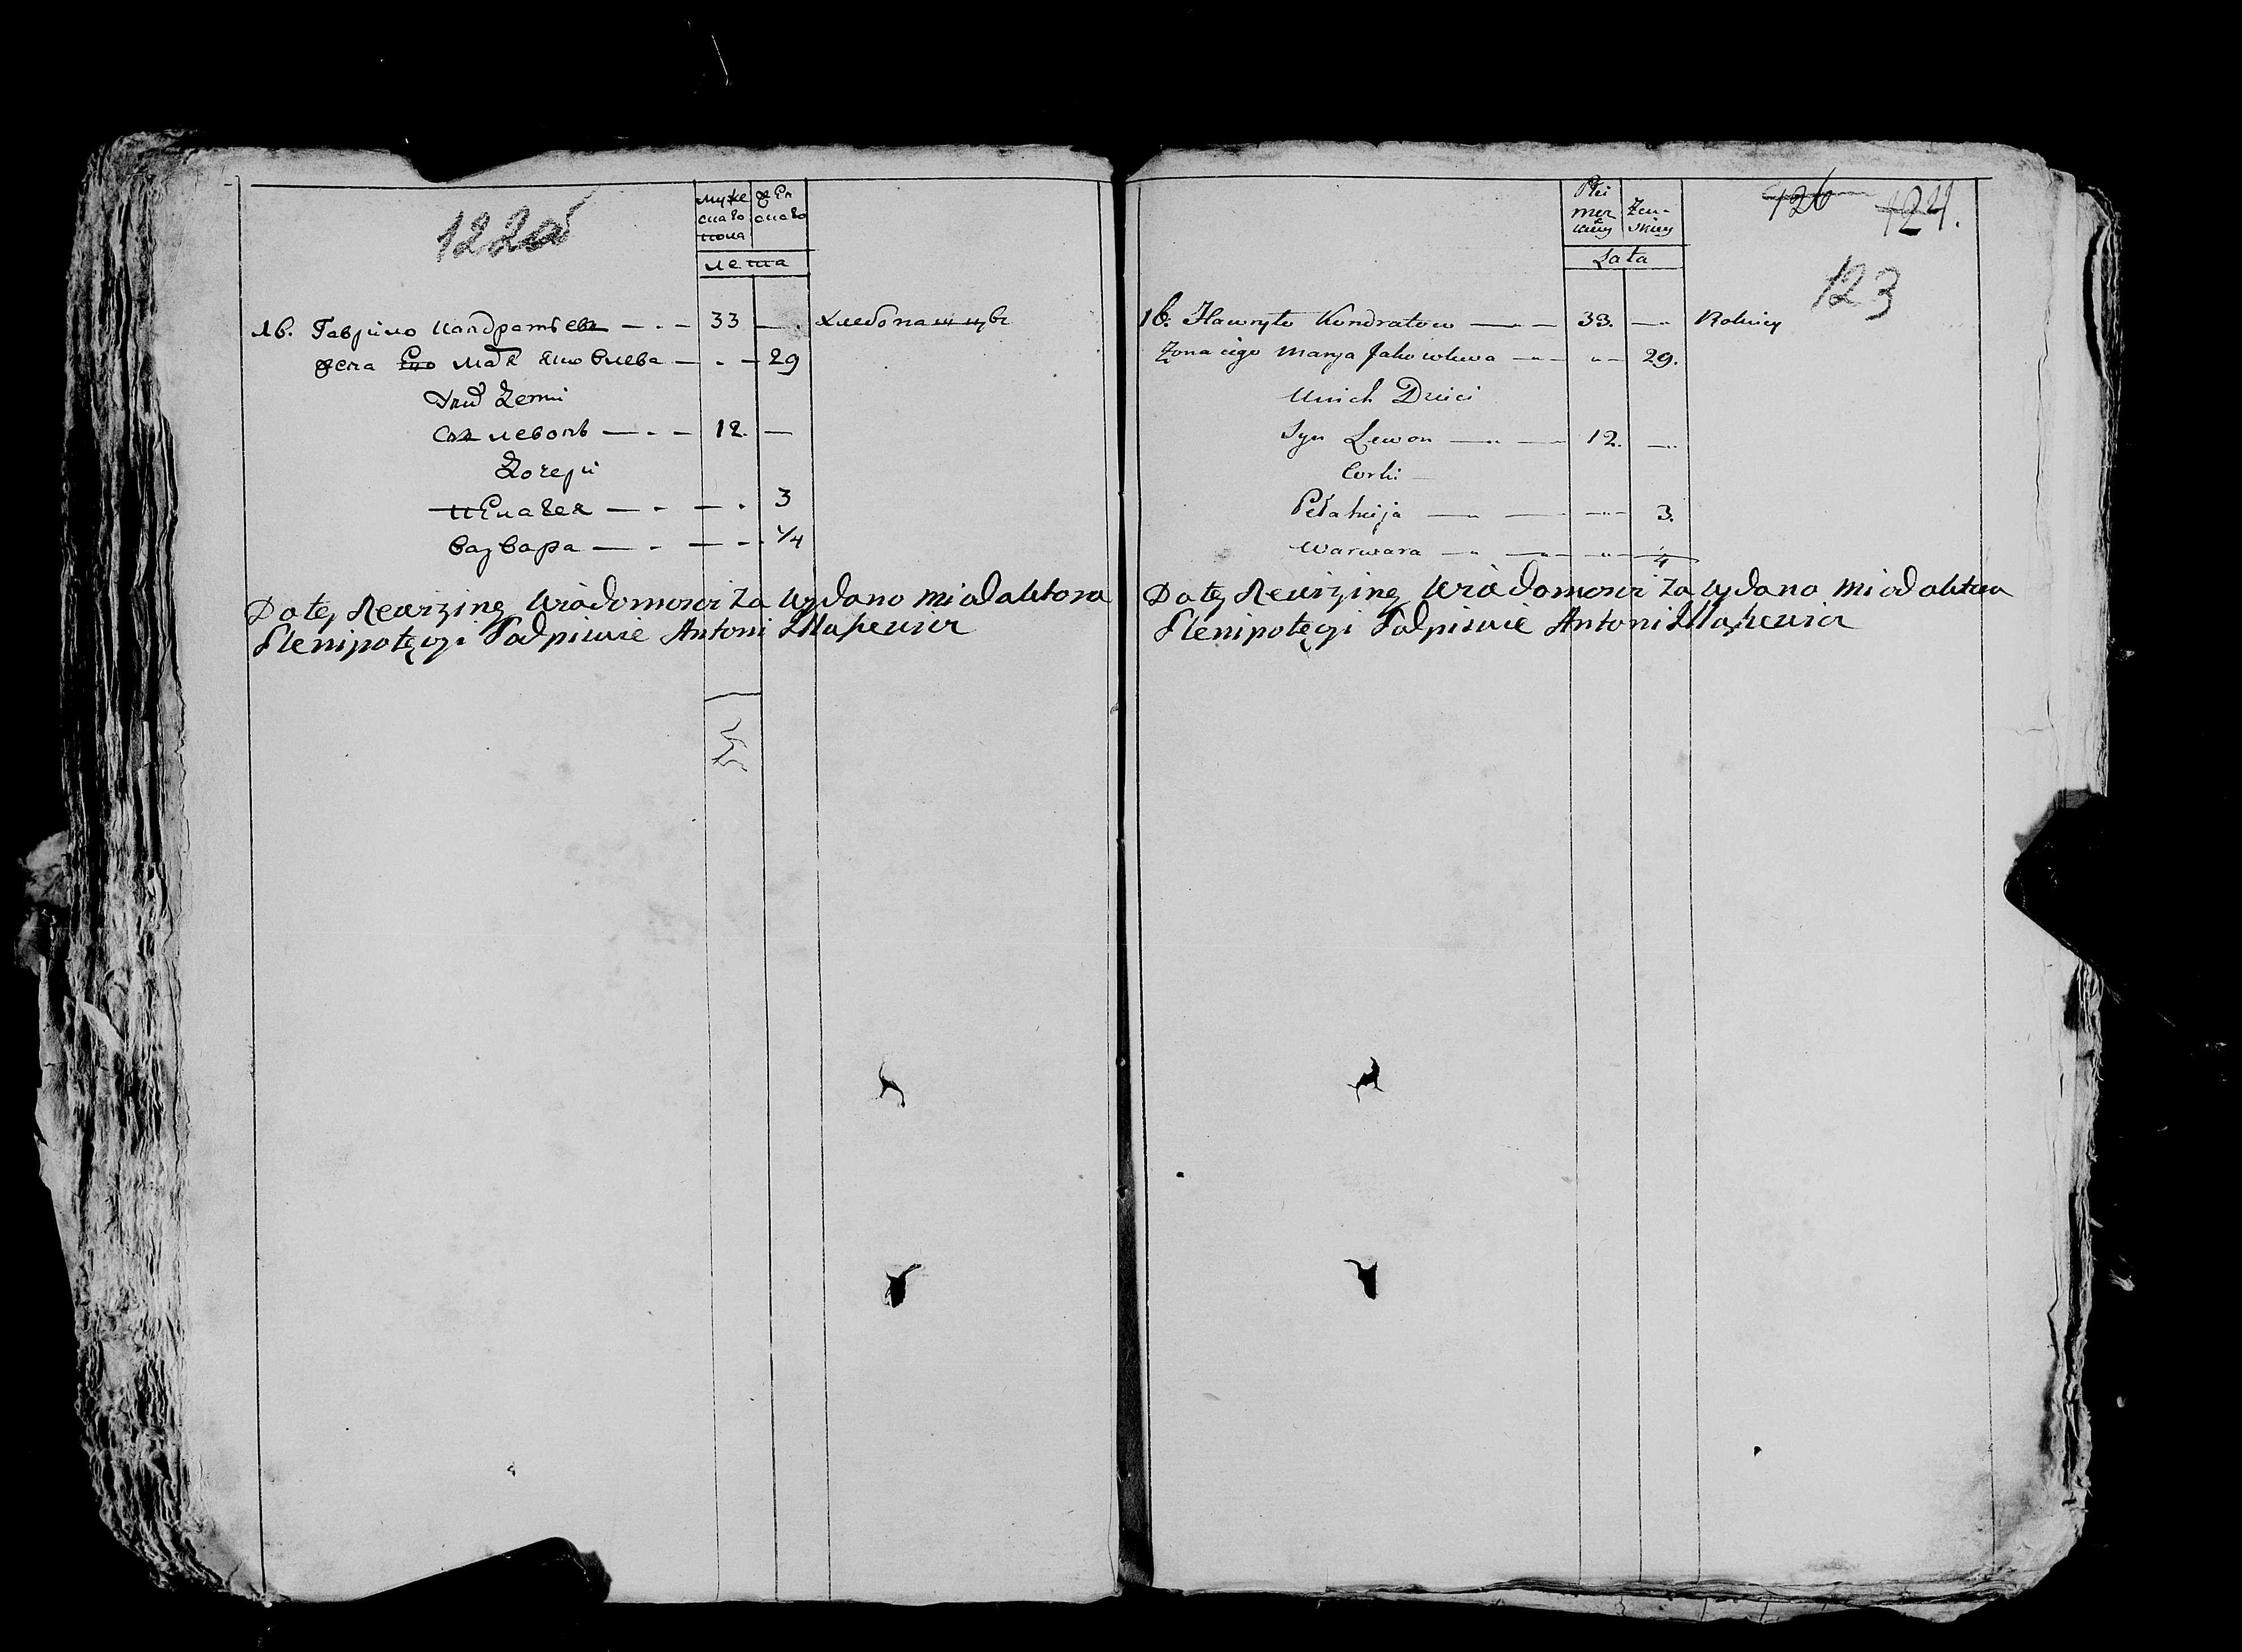 122об
муже
скаго
пола
жен
скаго
лета
16. Гаврило Кандратьевъ 33 Хлебопашцы
жена Его Мая Яковлева 29
Сын левонъ 12
Дочери
Пелагея 3
Варвара 1/4
Do tey Rewizyiney Wiadomości za wydano
Plenipotęcyi Podpisuie Antoni
Płci
męz
kiey
Żeń-
skiey
Lata
126 124.
123
16. Hawryło Kondratow 33. Rolnicy
Żona iego Marya Jakowlewa 29.
Unich Dzieci
Syn Lewon 12.
Corki
Pełahieja 3.
Warwara 1/4
Do tey Rewizyiney Wiadomości za wydano
Plenipotęcyi Podpisuie Antoni